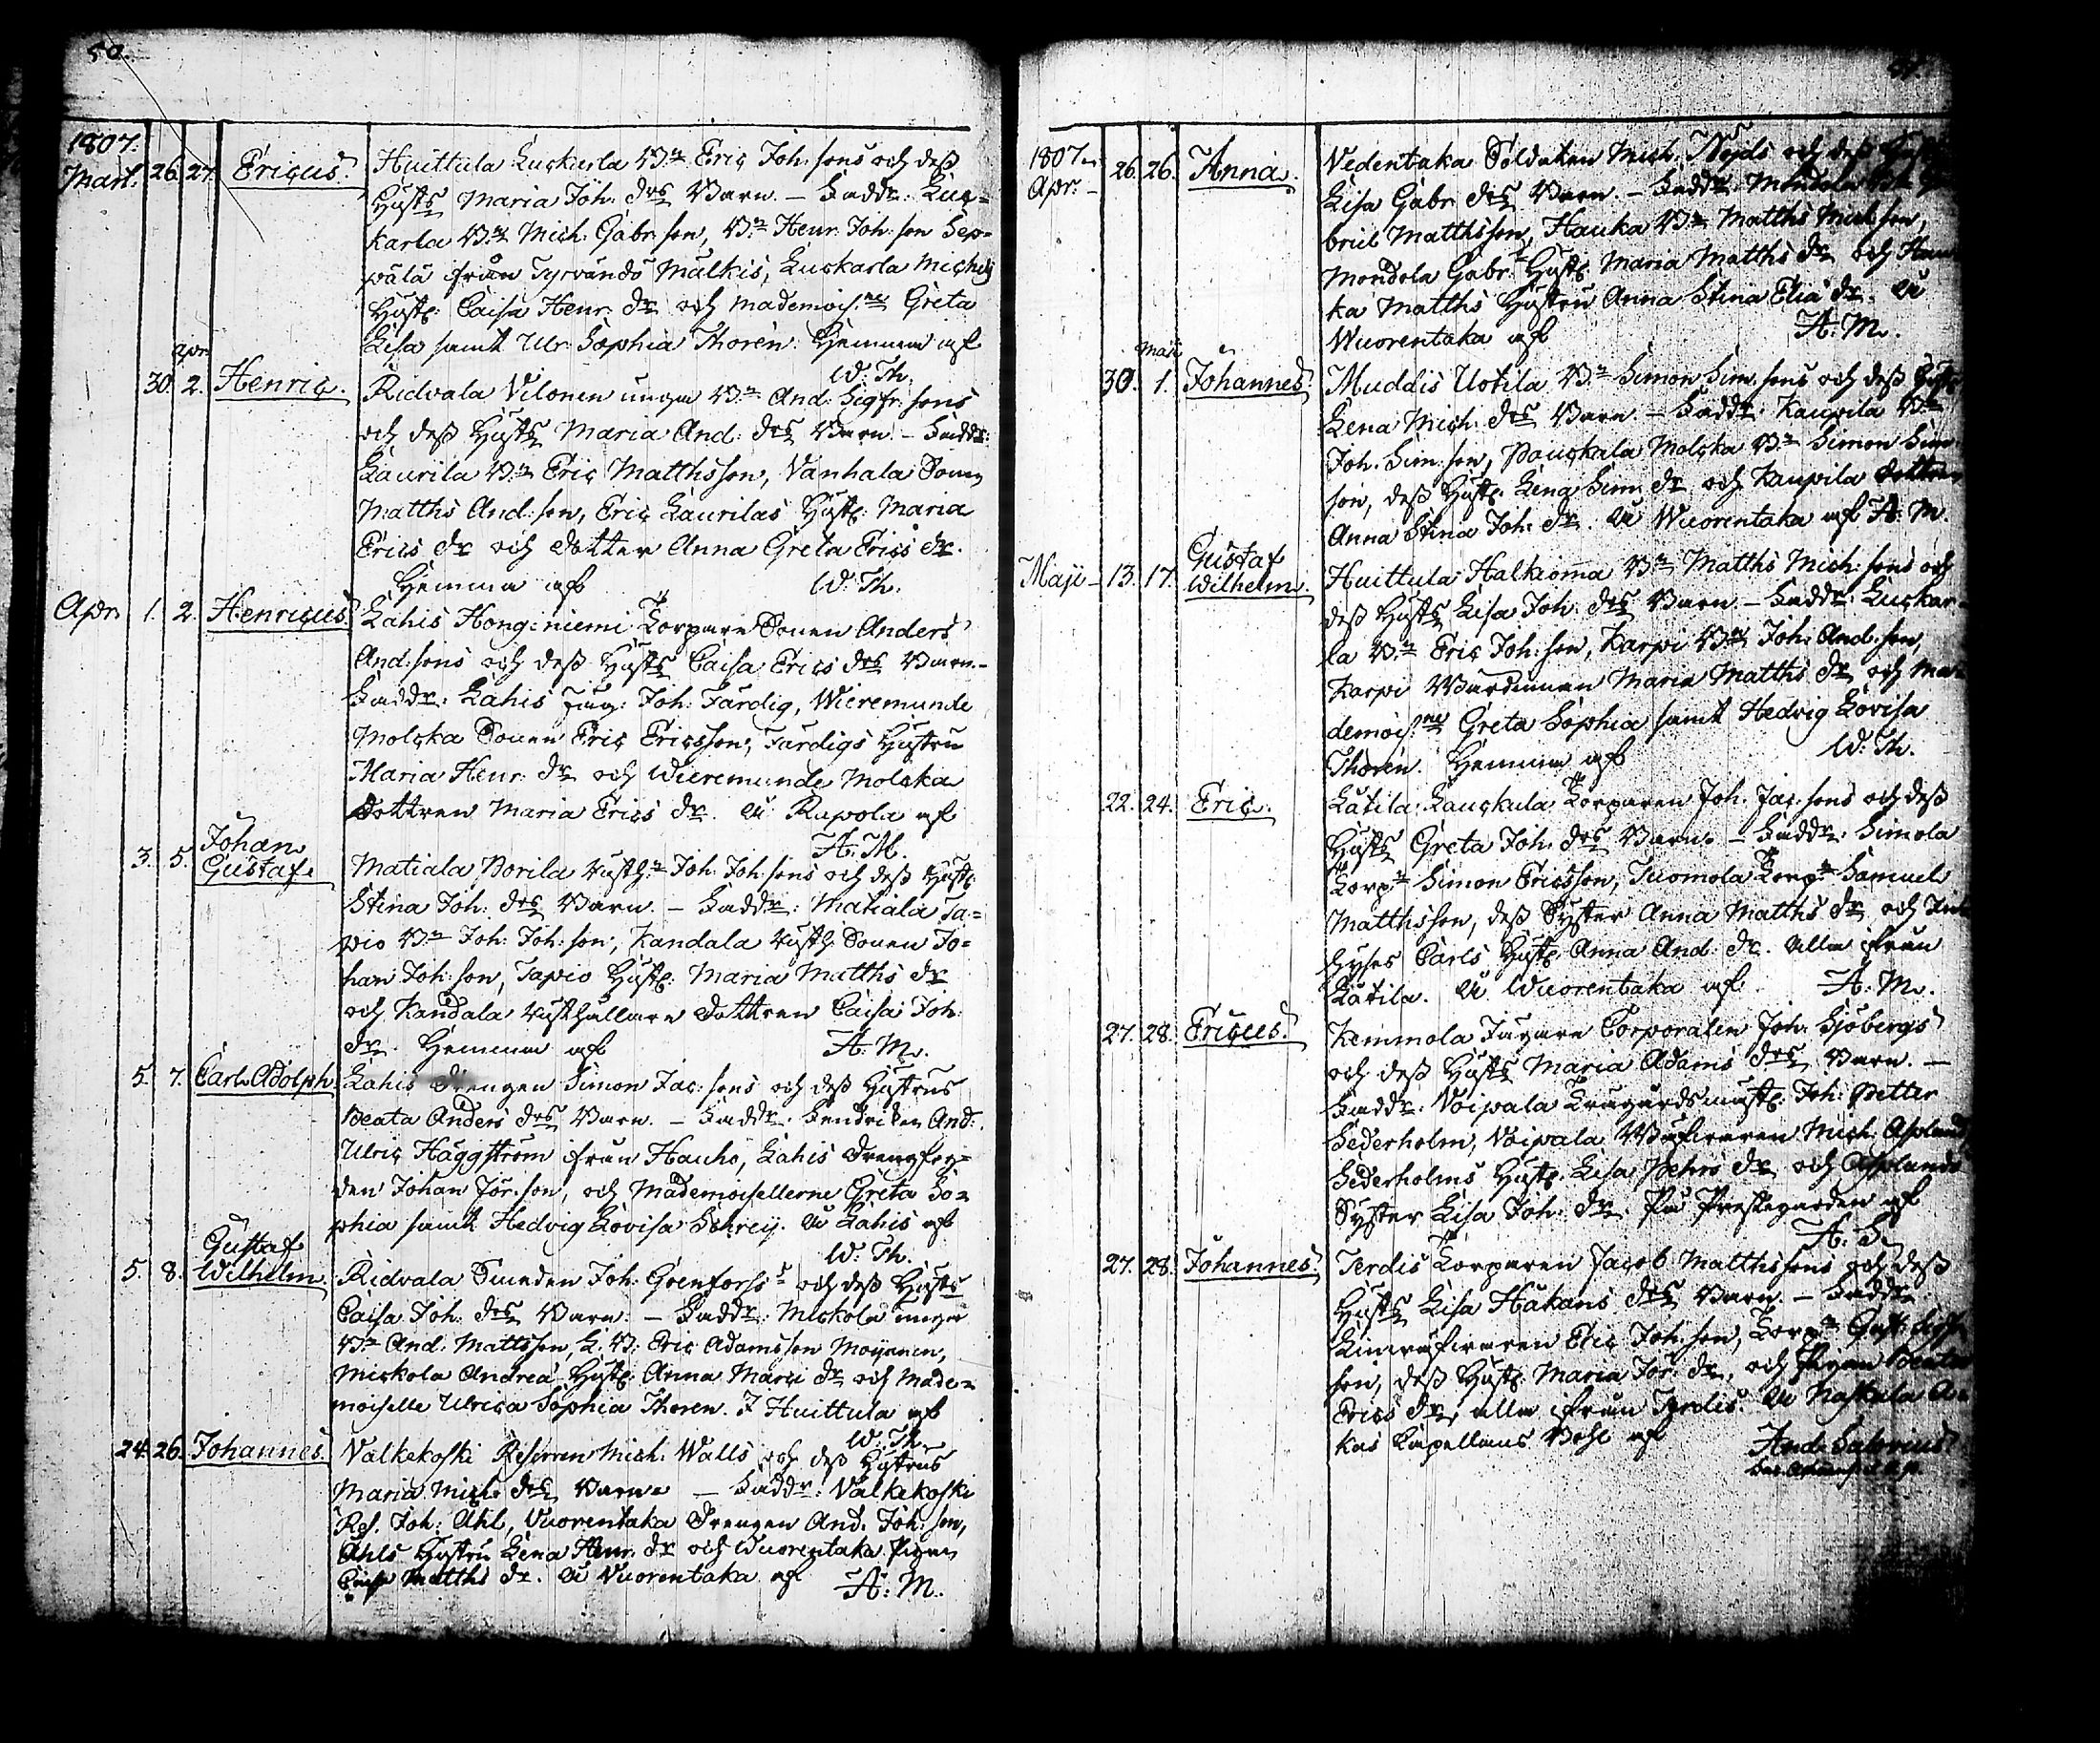 50.
1807.
Mart. 26. 27. Ericus. Huittula Luckarla B:n Eric Joh: sons och dess
Hust:s Maria Joh: drs Barn. – Faddr: Luc=
karla B:n Mich: Gabr: son, B:n Henr: Joh: son Sep=
pälä ifrån Tyrvändö Mälkis, Luckarla Michels
Hust: Caisa Henr: dr och Mademois:ne Greta
Lisa samt Ulr: Sophia Thorén. Hemma af
W. Th.
Apr:
30. 2. Henric. Ridvala Vilonen unga B:n And: Sigfr: sons
och dess Hust:s Maria And: drs Barn. – Faddr:
Laurila B:n Eric Matthsson, Vanhala Sonen
Matths And: son, Eric Laurilas Hust: Maria
Erics dr och dotter Anna Greta Erics dr.
Hemma af W. Th.
Apr. 1. 2. Henricus. Lahis Hongoniemi Torpare Sonen Anders
And: sons och dess Hust:s Caisa Erics drs Barn. –
Faddr: Lahis Jäg: Joh: Färdig, Wieremunde
Molska Sonen Eric Ericsson, Färdigs Hustru
Maria Henr: dr och Wieremunde Molska
Dottren Maria Erics dr. å Rapola af
A: M.
3. 5. Johan
Gustaf. Matiala Dorila Rusth:n Joh: Joh: sons och dess Hust:s
Stina Joh: drs Barn. – Faddr: Matiala Ta=
pio B:n Joh: Joh: son, Kandala Rusth: Sonen Jo=
han Joh: son, Tapio Hust: Maria Matths dr
och Kandala Rusthållare Dottren Caisa Joh:
dr. Hemma af A: M.
5. 7. Carl Adolph. Lahis Drengen Simon Jac: sons och dess Hustrus
Beata Anders drs Barn. – Faddr: Fendriken And:
Ulric Häggström ifrån Hauho, Lahis Drengfog=
den Johan Jör: son, och Mademoisellerne Greta So=
phia samt Hedvig Lovisa Schreij. å Lahis af
W: Th.
5. 8. Gustaf
Wilhelm. Ridvala Smeden Joh: Grenfors's och dess Hust:s
Caisa Joh: drs Barn. – Faddr: Mickola unga
B:n And: Mattsson, L. B: Eric Adamsson Moijanen,
Mickola Andreæ Hust: Anna Marci dr och Made=
moiselle Ulrica Sophia Thorén. I Huittula af
W. Th.
24. 26. Johannes. Valkekoski Reserven Mich: Walls och dess Hustrus
Maria Mich: drs Barn. – Faddr: Valkekoski
Res. Joh: Ahl, Vuorentaka Drengen And: Joh: son,
Ahls Hustru Lena Henr: dr och Wuorentaka Pigan
Caisa Matths dr. å Vuorentaka af A: M.
51.
1807.
Apr: – 26. 26. Anna. Vedentaka Soldaten Mich: Nöjds och dess
Lisa Gabr: drs Barn. – Faddr: Mondola B:n Ga
briel Matthsson, Hauka B:n Matths Mich: son,
Mondola Gabr: Hust: Maria Matths dr och Hau
ka Matths Hustru Anna Stina Elia dr. å
Wuorentaka af A: M.
Maii
30. 1. Johannes. Muddis Uotila B:n Simon Sim: sons och dess Hust:s
Lena Mich: drs Barn. – Faddr: Kaupila B:n
Joh: Sim: son, Pauckala Molska B:n Simon Sim:
son, dess Hust: Lena Sim: dr och Kaupila Dottren
Anna Stina Joh: dr. å Wuorentaka af A: M
Maji – 13. 17. Gustaf
Wilhelm. Huittula Halkioma B:n Matths Mich: sons och
dess Hust:s Lisa Joh: drs Barn. – Faddr: Luckar=
la B:n Eric Joh: son, Karpi B:n Joh: And: son,
Karpi Värdinnan Maria Matths dr och Ma=
demois:ne Greta Sophia samt Hedvig Lovisa
Thorén. Hemma af W: Th.
22. 24. Eric. Latila Lauckula Torparen Joh: Jac: sons och dess
Hust:s Greta Joh: drs Barn. – Faddr: Simola
Torp:n Simon Ericsson, Tuomola Torp:n Samuel
Matthsson, dess Syster Anna Matths dr och In
hyses Carls Hust: Anna And: dr. Alla ifrån
Latila. å Wuorentaka af A: M.
27. 28. Ericus. Kemmola Jägare Corporalen Joh: Sjöbergs
och dess Hust:s Maria Adams drs Barn. –
Faddr: Voipala Trägårdsmäst: Joh: Petter
Sederholm, Voipala Väfveren Mich: Asplund,
Sederholms Hust: Lisa Pehrs dr och Asplunds
Syster Lisa Joh: dr. På Prestegården af
A: S.
27. 28. Johannes. Terdis Torparen Jacob Matthssons och dess
Hust:s Lisa Håkans drs Barn. – Faddr:
Linväfveren Eric Joh: son, Torp:n Gust: Sigfr
son, dess Hust: Maria Jör: dr, och Pigan Beata
Erics dr, alla ifrån Terdis. å
kas Capellans Bohl af And: Salovius